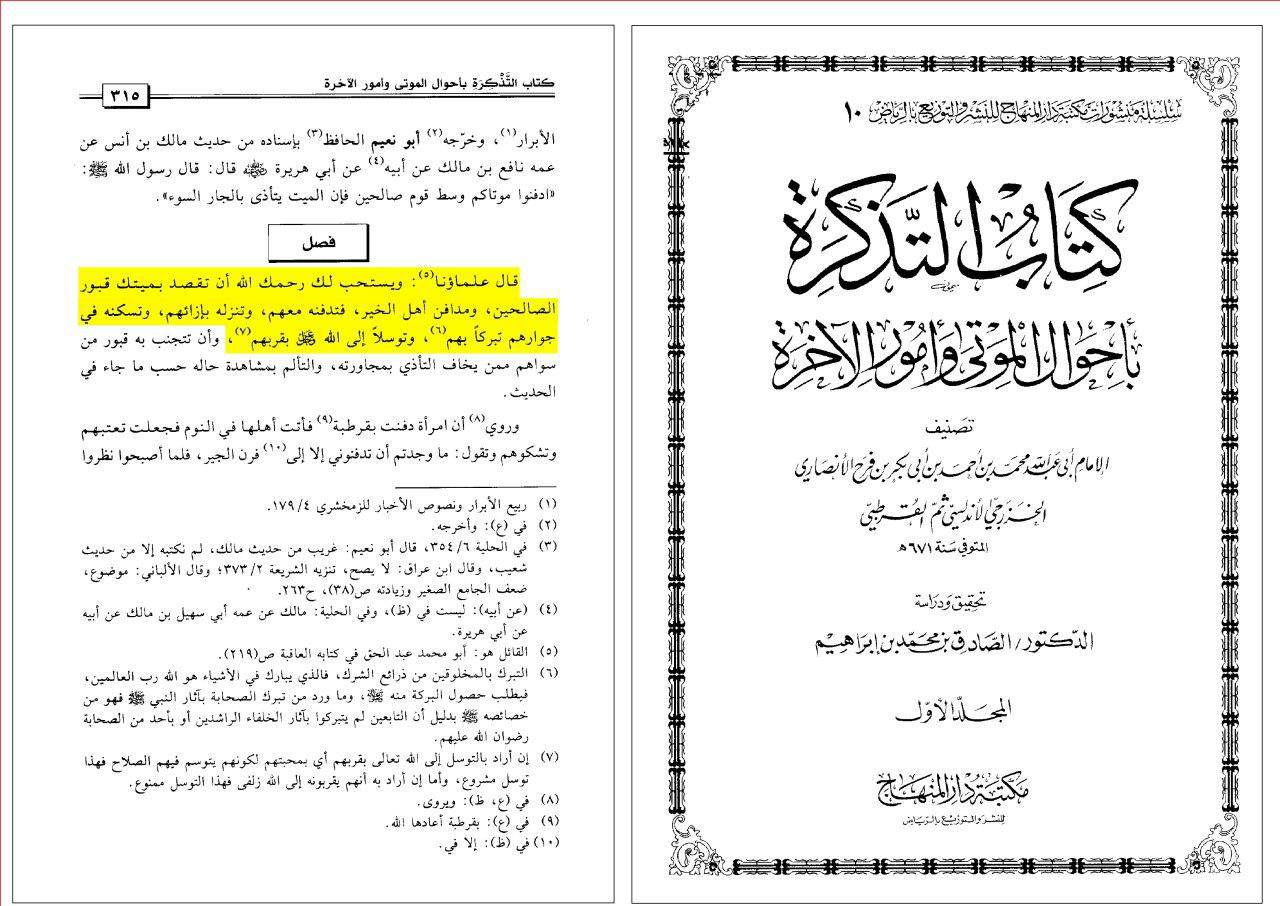 سلسلة منشورات مكتبة دار المنهاج للنشر والتوزيع بالرياض ١٠
كتاب التذكرة
بأحوال الموتى وأمور الآخرة
تصنيف
الإمام أبي عبد الله محمد بن أحمد بن أبي بكر بن فرح الأنصاري
الخزرجي الأندلسي ثم القرطبي
المتوفى سنة ٦٧١ هـ
تحقيق ودراسة
الدكتور/ الصادق بن محمد بن إبراهيم
المجلد الأول
مكتبة دار المنهاج
للنشر والتوزيع بالرياض
كتاب التَّذْكِرَةِ بأحوال الموتى وأمور الآخرة
٣١٥
الأبرار(١)، وخرّجه(٢) أبو نعيم الحافظ(٣) بإسناده من حديث مالك بن أنس عن
عمه نافع بن مالك عن أبيه(٤) عن أبي هريرة رضي الله عنه قال: قال رسول الله ﷺ:
«ادفنوا موتاكم وسط قوم صالحين فإن الميت يتأذى بالجار السوء».
فصل
قال علماؤنا(٥): ويستحب لك رحمك الله أن تقصد بميتك قبور
الصالحين، ومدافن أهل الخير، فتدفنه معهم، وتنزله بإزائهم، وتسكنه في
جوارهم تبركاً بهم(٦)، وتوسلاً إلى الله ﷻ بقربهم(٧)، وأن تتجنب به قبور من
سواهم ممن يخاف التأذي بمجاورته، والتألم بمشاهدة حاله حسب ما جاء في
الحديث.
وروي(٨) أن امرأة دفنت بقرطبة(٩) فأتت أهلها في النوم فجعلت تعتبهم
وتشكوهم وتقول: ما وجدتم أن تدفنوني إلا إلى(١٠) فرن الجير، فلما أصبحوا نظروا
(١) ربيع الأبرار ونصوص الأخبار للزمخشري ١٧٩/٤.
(٢) في (ع): وأخرجه.
(٣) في الحلية ٣٥٤/٦، قال أبو نعيم: غريب من حديث مالك، لم نكتبه إلا من حديث
شعيب، وقال ابن عراق: لا يصح، تنزيه الشريعة ٣٧٣/٢؛ وقال الألباني: موضوع،
ضعف الجامع الصغير وزيادته ص(٣٨)، ح٢٦٣.
(٤) (عن أبيه): ليست في (ظ)، وفي الحلية: مالك عن عمه أبي سهيل بن مالك عن أبيه
عن أبي هريرة.
(٥) القائل هو: أبو محمد عبد الحق في كتابه العاقبة ص(٢١٩).
(٦) التبرك بالمخلوقين من ذرائع الشرك، فالذي يبارك في الأشياء هو الله رب العالمين،
فيطلب حصول البركة منه ﷻ، وما ورد من تبرك الصحابة بآثار النبي ﷺ فهو من
خصائصه ﷺ بدليل أن التابعين لم يتبركوا بآثار الخلفاء الراشدين أو بأحد من الصحابة
رضوان الله عليهم.
(٧) إن أراد بالتوسل إلى الله تعالى بقربهم أي بمحبتهم لكونهم يتوسم فيهم الصلاح فهذا
توسل مشروع، وأما إن أراد به أنهم يقربونه إلى الله زلفى فهذا التوسل ممنوع.
(٨) في (ع، ظ): ويروى.
(٩) في (ع): بقرطبة أعادها الله.
(١٠) في (ظ): إلا في.